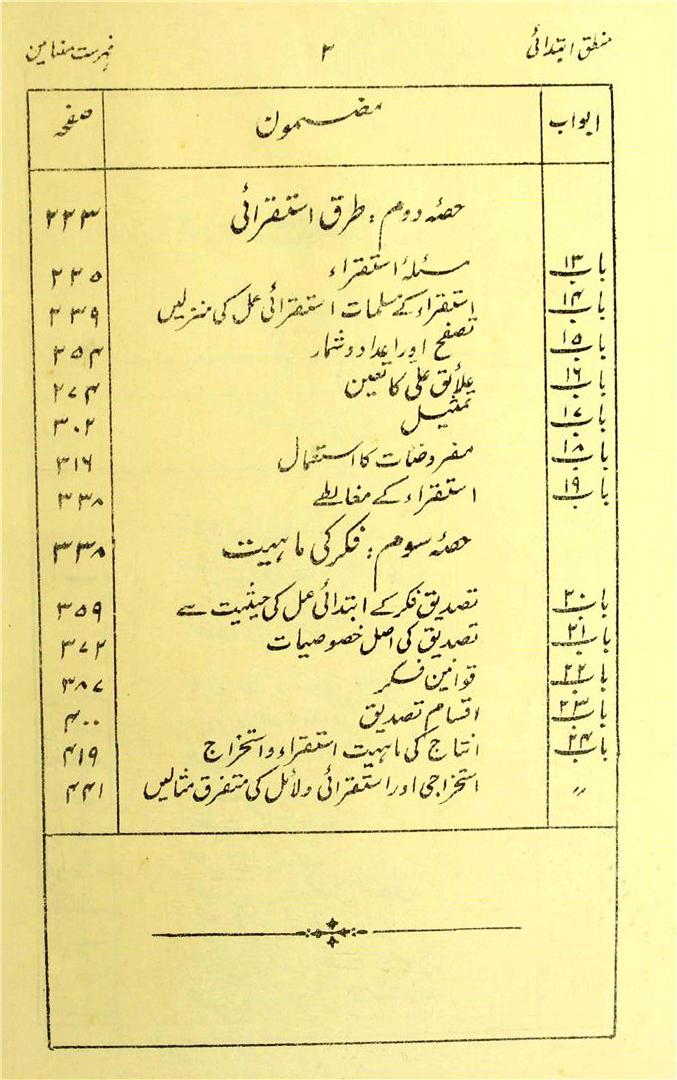 منطق ابتدائی ۳ فہرست مضامین
ابواب مضمون صفحہ
حصۂ دوم : طرق استقرائی ۲۳۳
باب ۱۳ مسئلۂ استقراء ۲۳۵
باب ۱۴ استقراء کے مسلمات استقرائی عمل کی منزلیں ۲۳۹
باب ۱۵ تصفح اور اعداد و شمار ۲۵۴
باب ۱۶ علائق علّی کا تعین ۲۷۴
باب ۱۷ تمثیل ۳۰۲
باب ۱۸ مفروضات کا استعمال ۳۱۶
باب ۱۹ استقراء کے مغالطے ۳۳۸
حصۂ سوم : فکر کی ماہیت ۳۳۸
باب ۲۰ تصدیق فکر کے ابتدائی عمل کی حیثیت سے ۳۵۹
باب ۲۱ تصدیق کی اصل خصوصیات ۳۷۲
باب ۲۲ قوانین فکر ۳۸۷
باب ۲۳ اقسام تصدیق ۴۰۰
باب ۲۴ انتاج کی ماہیت استقراء و استخراج ۴۱۹
" استخراجی اور استقرائی دلائل کی متفرق مثالیں ۴۴۱